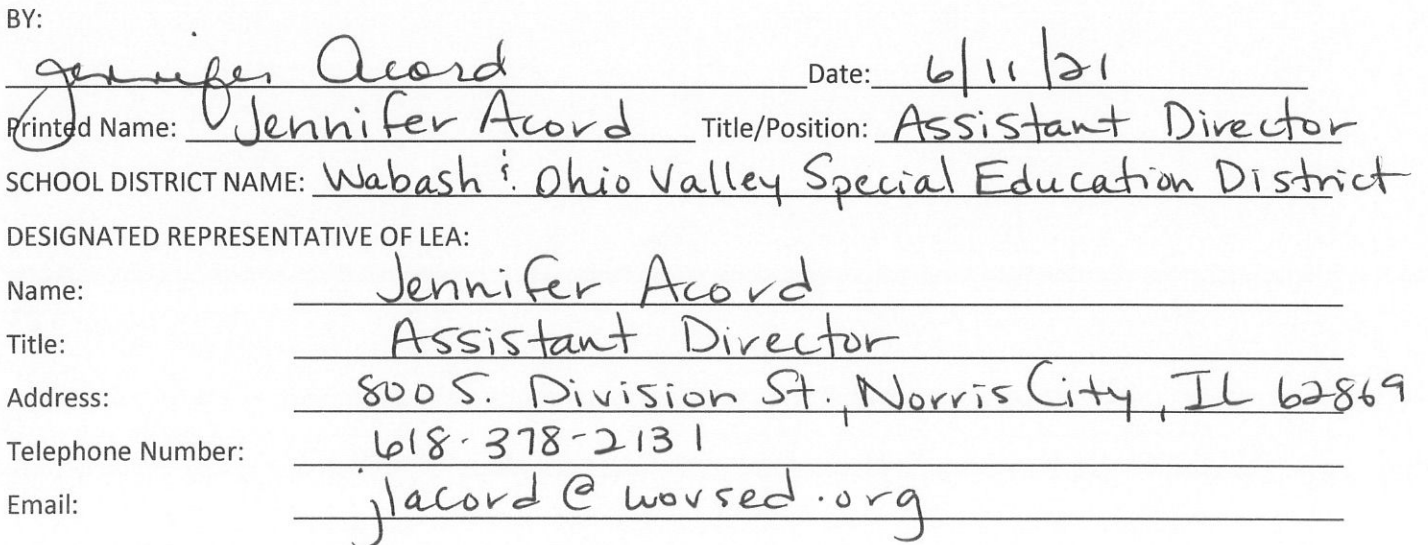 BY:
Jennifer Acord Date: 6/11/21
Printed Name: Jennifer Acord Title/Position: Assistant Director
SCHOOL DISTRICT NAME: Wabash & Ohio Valley Special Education District
DESIGNATED REPRESENTATIVE OF LEA:
Name: Jennifer Acord
Title: Assistant Director
Address: 800 S. Division St., Norris City, IL 62869
Telephone Number: 618-378-2131
Email: jlacord@wovsed.org